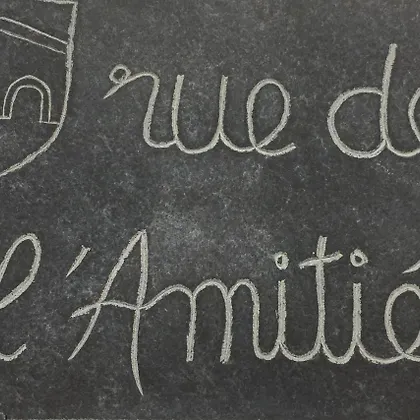 rue de
l'Amitié